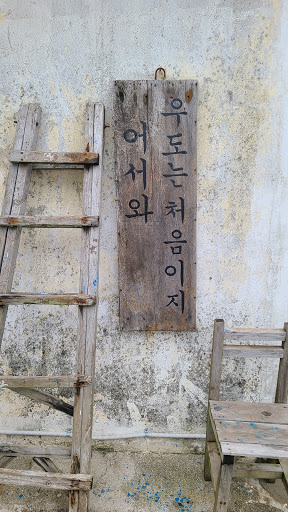 어서와
우도는처음이지